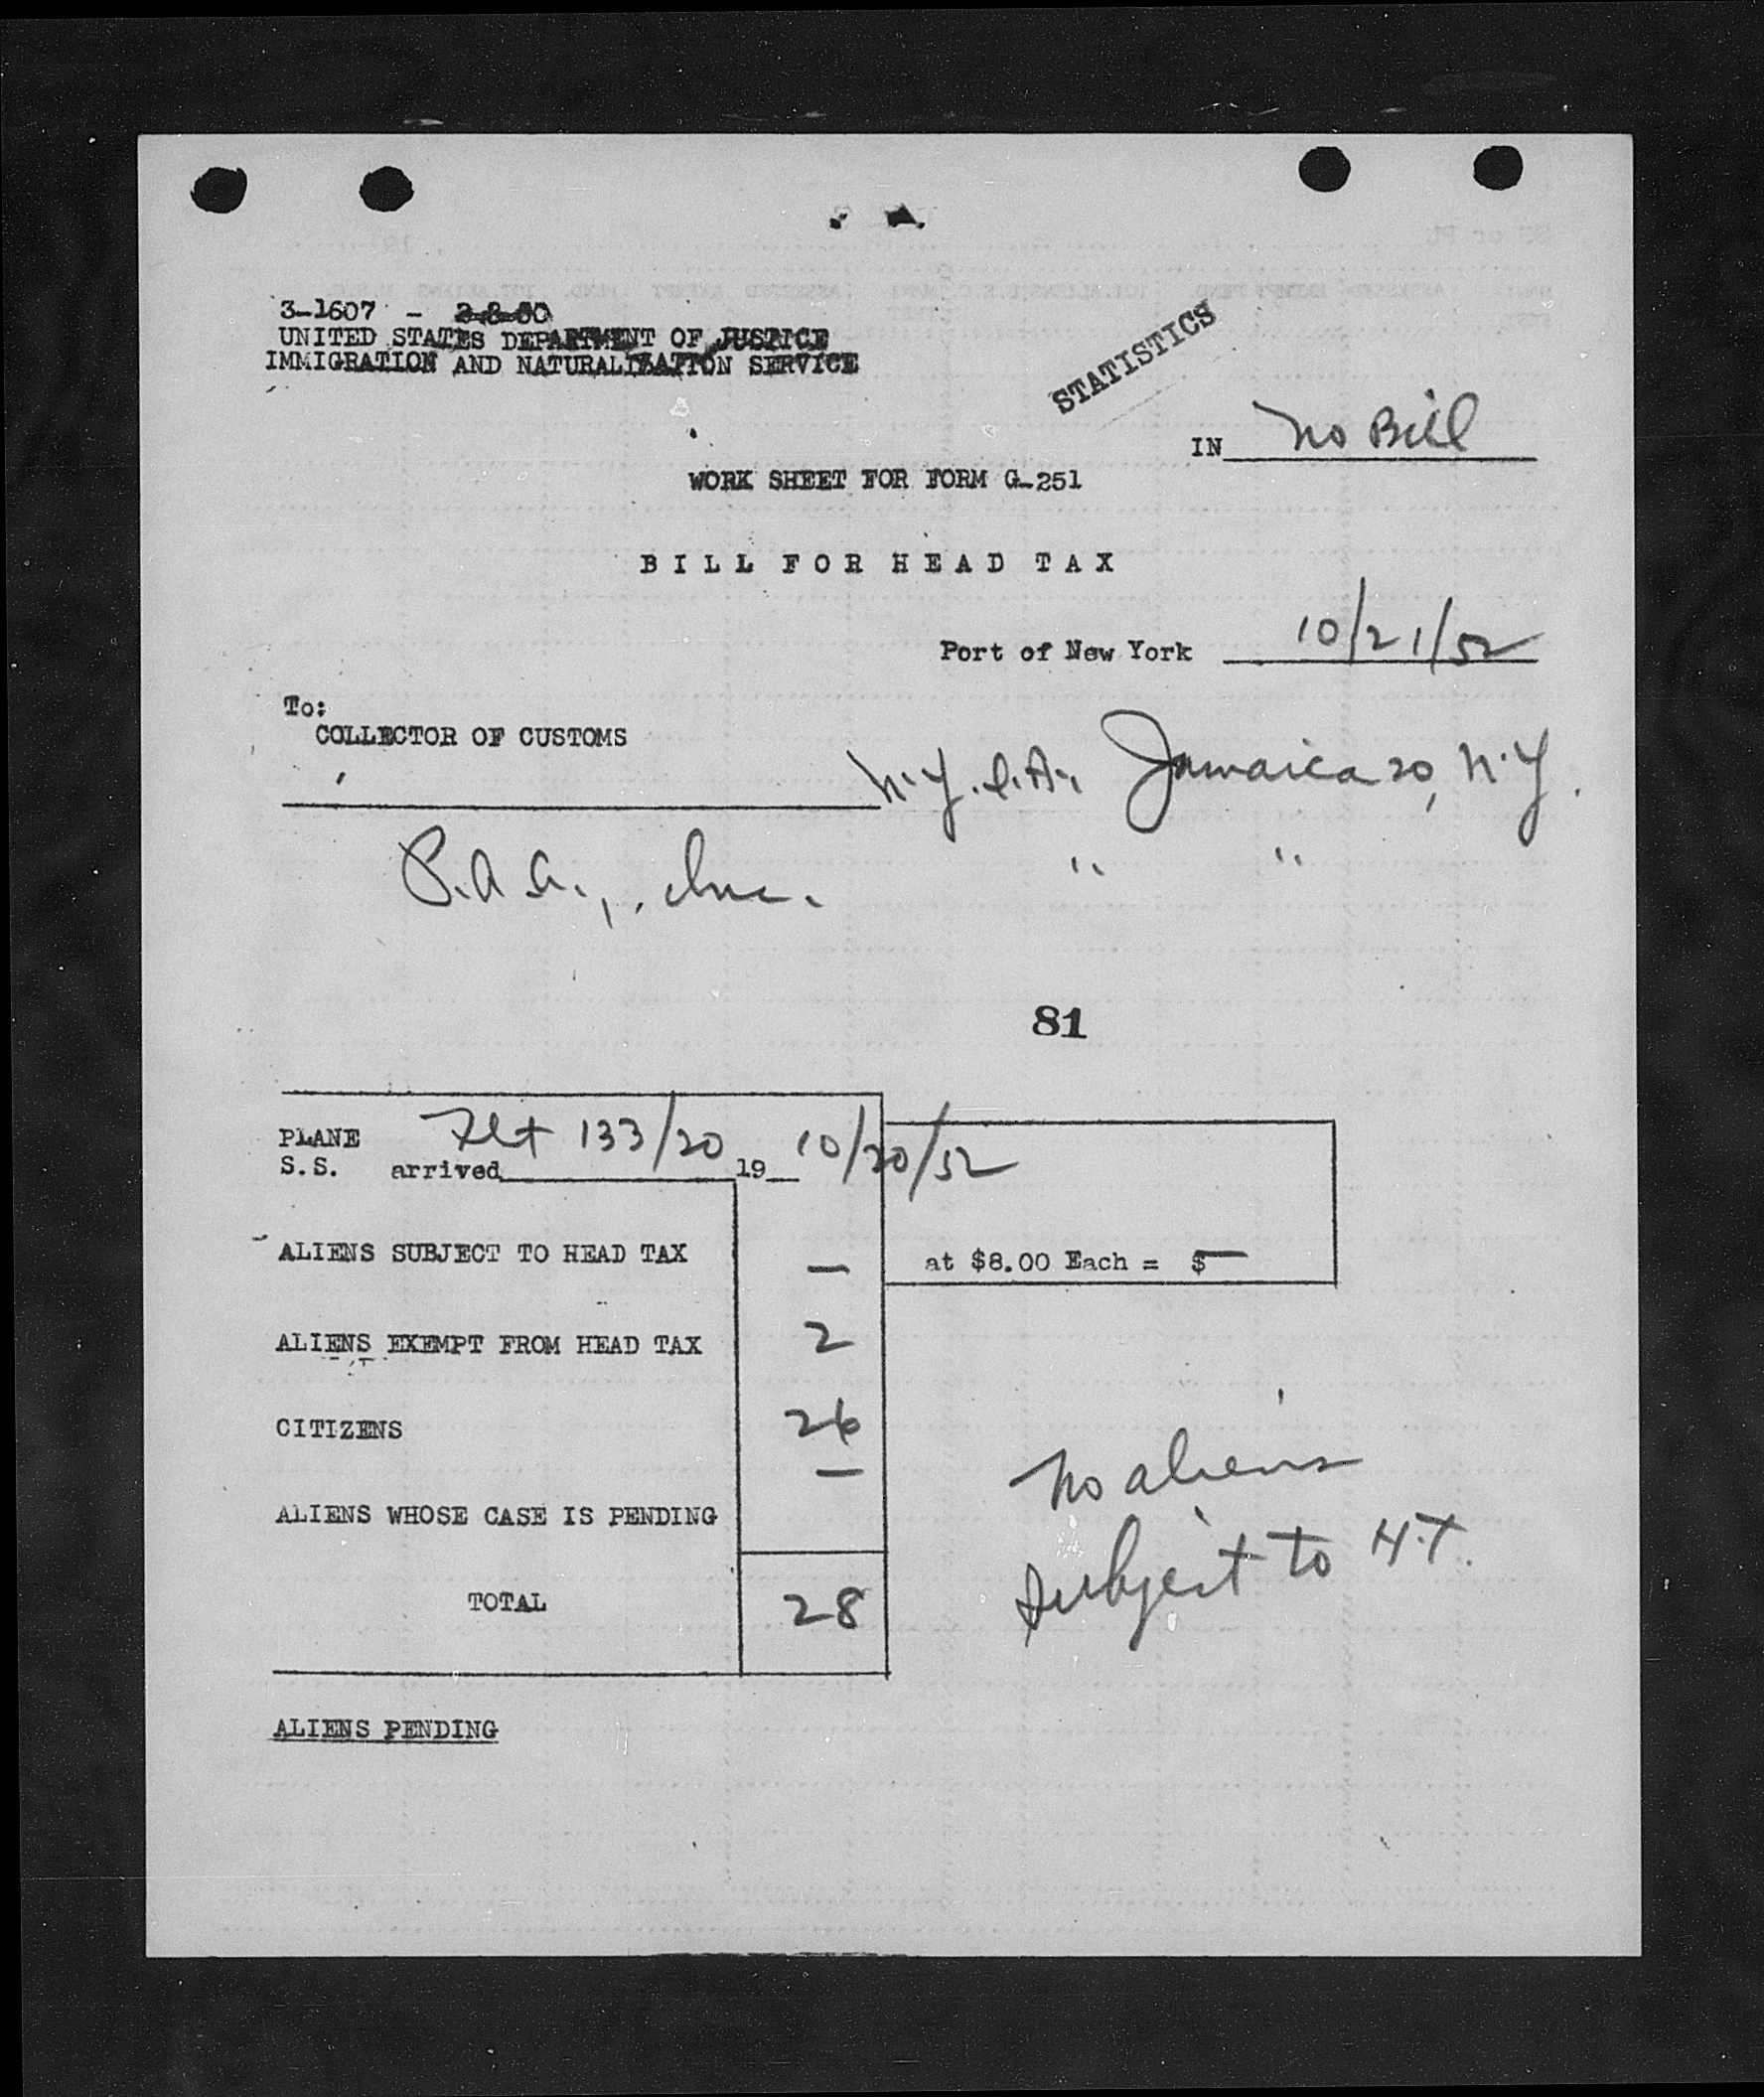 3-1607 - 2-8-50
UNITED STATES DEPARTMENT OF JUSTICE
IMMIGRATION AND NATURALIZATION SERVICE
STATISTICS
IN No Bill
WORK SHEET FOR FORM G-251
BILL FOR HEAD TAX
Port of New York 10/21/52
To:
COLLECTOR OF CUSTOMS
N.Y.I.A., Jamaica 20, N.Y.
P.A.A., Inc. " "
81
PLANE Flt 133/20 10/20/52
S.S. arrived 19
ALIENS SUBJECT TO HEAD TAX — at $8.00 Each = $—
ALIENS EXEMPT FROM HEAD TAX 2
CITIZENS 26
—
ALIENS WHOSE CASE IS PENDING
No aliens
subject to H.T.
TOTAL 28
ALIENS PENDING